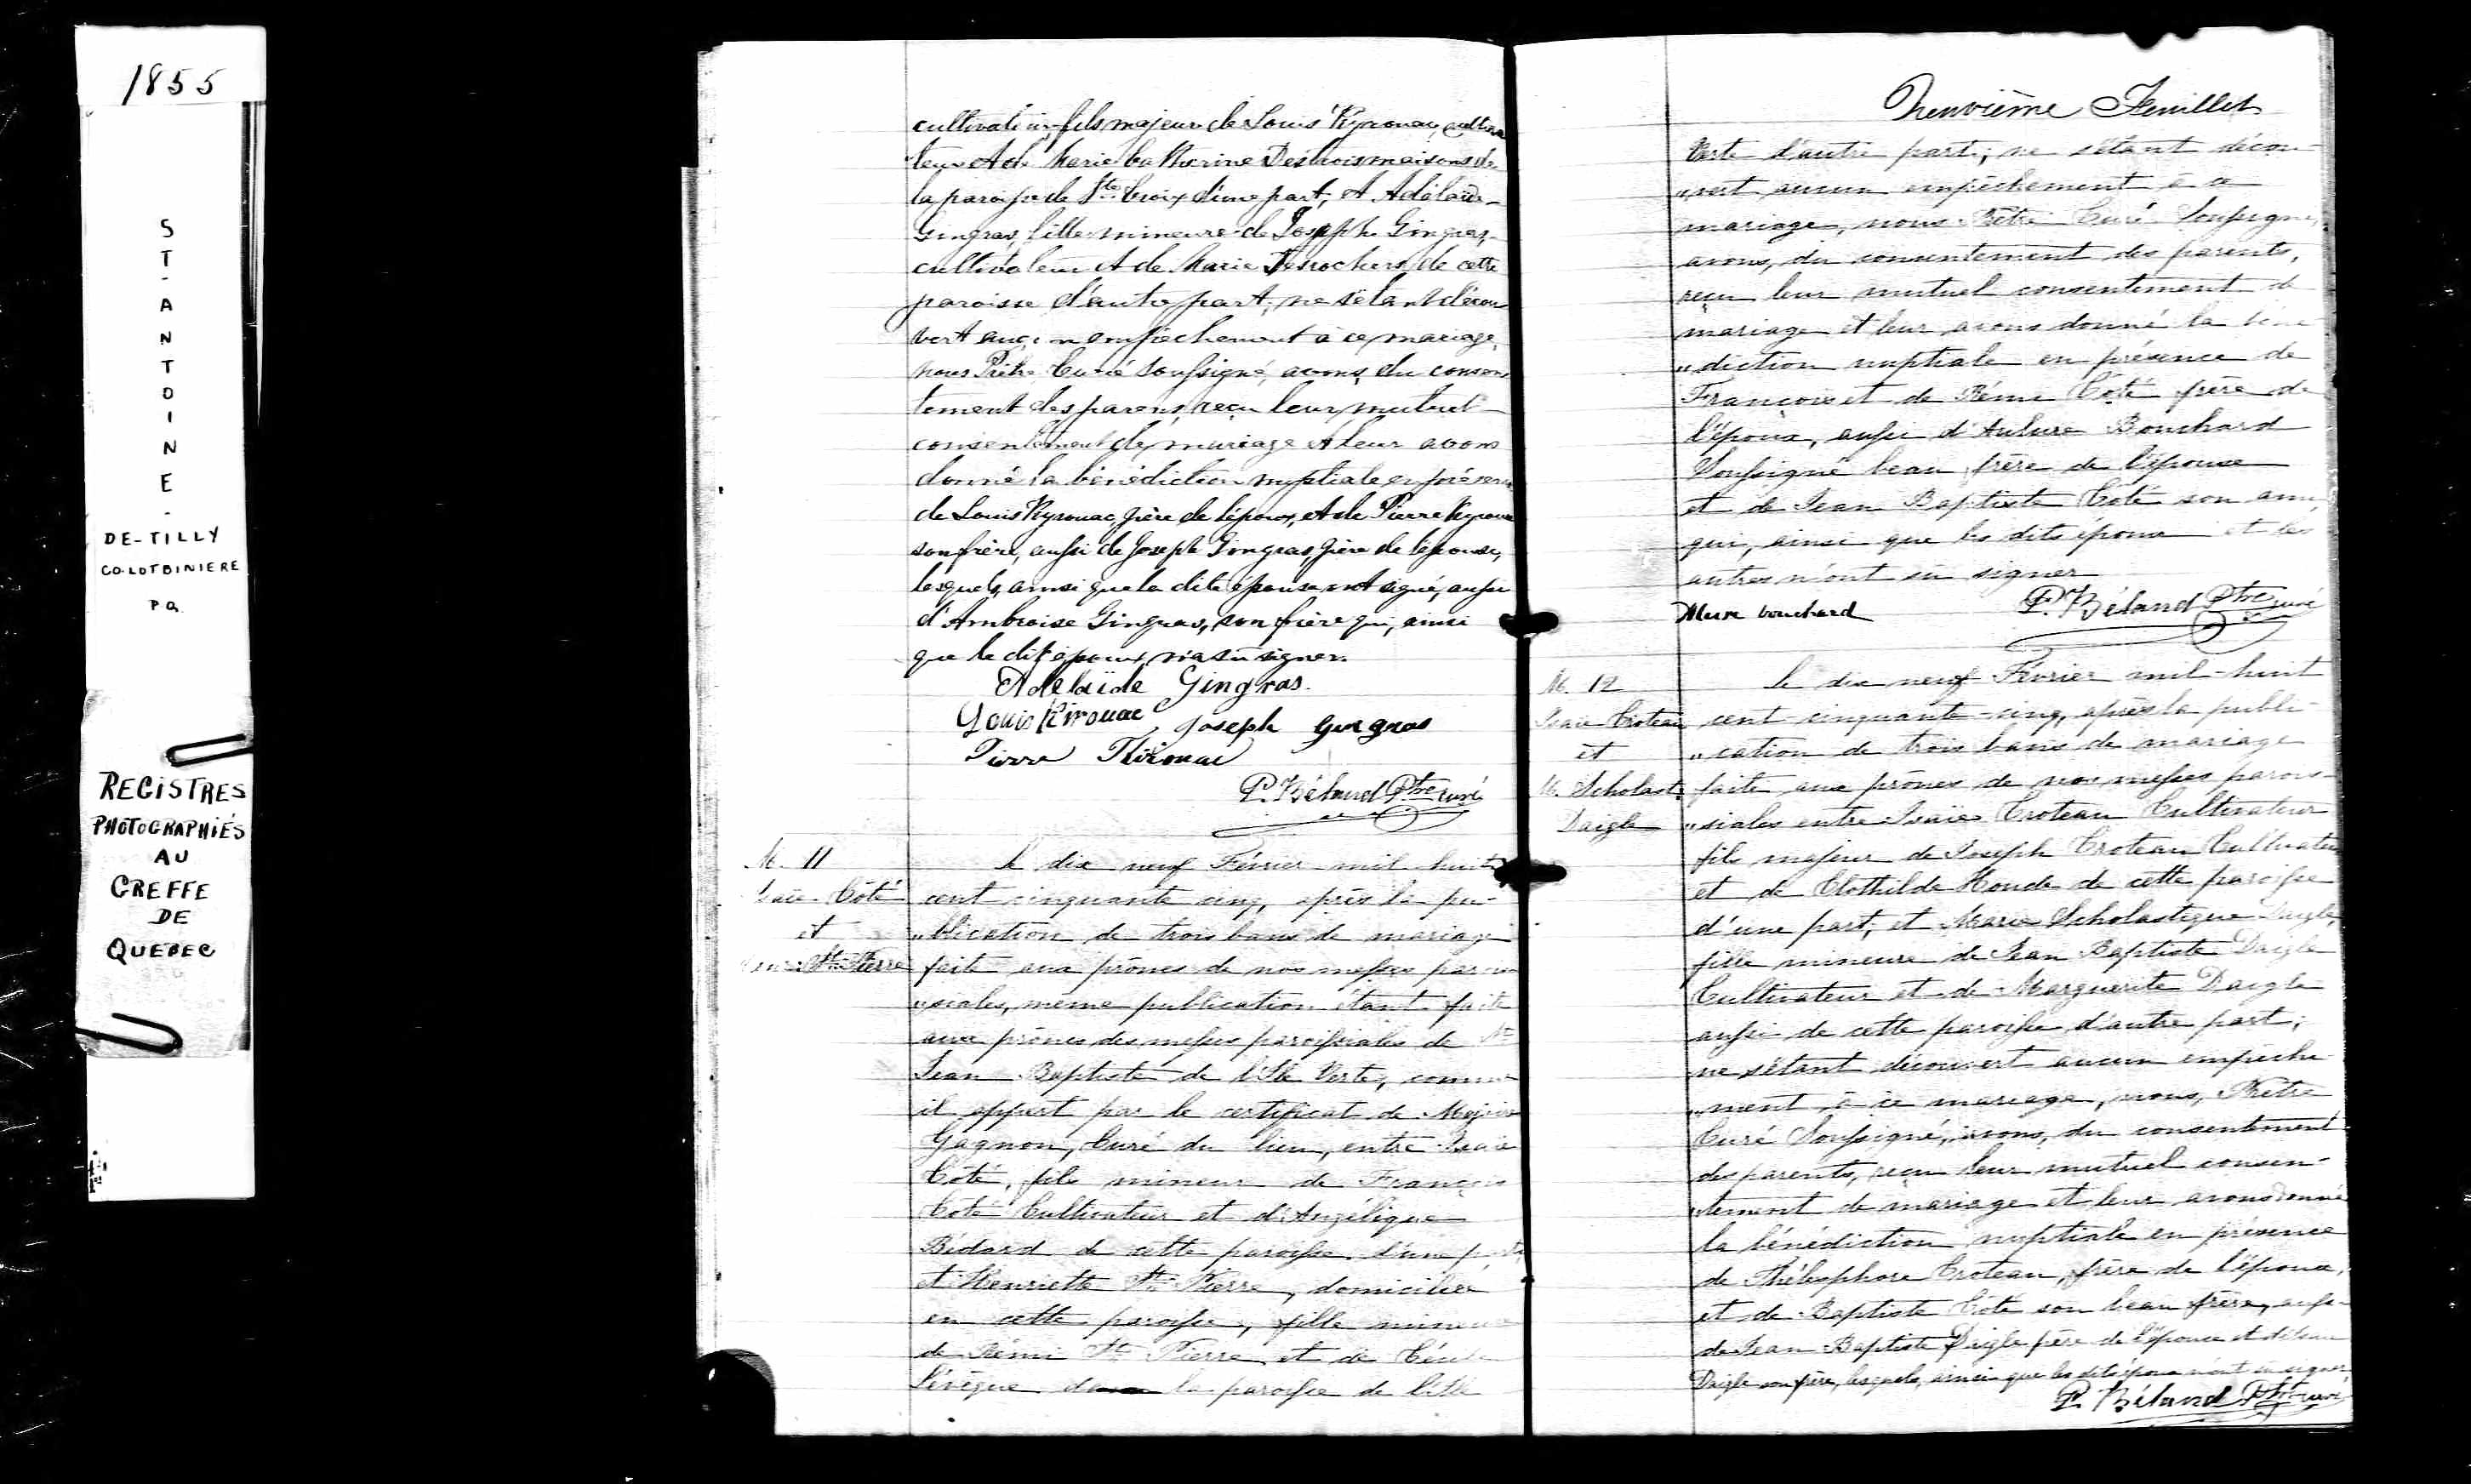 1855
ST-ANTOINE-
DE-TILLY
CO.LOTBINIERE
P Q
REGISTRES
PHOTOGRAPHIÉS
AU
GREFFE
DE
QUEBEC
cultivateur, fils majeur de Louis Kyrouac, cultiva
teur et de Marie Catherine Destroismaisons de
la paroisse de Ste Croix d'une part, et Adélaïde
Gingras, fille mineure de Joseph Gingras,
cultivateur et de Marie Desrochers de cette
paroisse d'autre part, ne s'étant décou
vert aucun empêchement à ce mariage,
nous Prêtre Curé soussigné, avons, du consen
tement des parens, reçu leur mutuel
consentement de mariage et leur avons
donné la bénédiction nuptiale en présence
de Louis Kyrouac, père de l'époux, et de Pierre Kyrouac
son frère, aussi de Joseph Gingras, père de l'épouse,
lesquels, ainsi que la dite épouse ont signé, aussi
d'Ambroise Gingras, son frère qui, ainsi
que le dit époux, n'a su signer.
Adelaïde Gingras.
Louis Kirouac Joseph Gingras
Pierre Kirouac
P. Béland Ptre curé
M. 11
Isaïe Côté
et
St. Pierre
le dix neuf Février mil huit
cent cinquante cinq, après la pu-
"blication de trois bans de mariage
faite aux prônes de nos messes parois
"siales, même publication étant faite
aux prônes des messes paroissiales de St
Jean Baptiste de l'Ile Verte, comme
il appert par le certificat de Messire
Gagnon, Curé du lieu, entre Isaïe
Côté, fils mineur de François
Côté Cultivateur et d'Angélique
Bédard de cette paroisse d'une part,
et Henriette St. Pierre, domiciliée
en cette paroisse, fille mineure
de Rémi St. Pierre et de Cécile
Lévêque de la paroisse de l'Ile
Neuvième Feuillet
Verte d'autre part; ne s'étant décou-
"vert aucun empêchement à ce
mariage, nous Prêtre Curé Soussigné,
avons, du consentement des parents,
reçu leur mutuel consentement de
mariage et leur avons donné la béné
"diction nuptiale en présence de
François et de Rémi Côté frère de
l'époux, aussi d'Aulure Bouchard
Soussigné beau frère de l'épouse
et de Jean Baptiste Côté son ami,
qui, ainsi que les dits époux et les
autres n'ont su signer
bouchard P. Béland Ptre curé
M. 12
Isaïe Croteau
et
M. Scholast.
Daigle
le dix neuf Février mil-huit
cent cinquante-cinq, après la publi-
"cation de trois bans de mariage
faite aux prônes de nos messes parois-
"siales entre Isaïe Croteau Cultivateur
fils majeur de Joseph Croteau Cultivateur
et de Clothilde Houde de cette paroisse
d'une part; et Marie Scholastique Daigle,
fille mineure de Jean Baptiste Daigle
Cultivateur et de Marguerite Daigle
aussi de cette paroisse d'autre part;
ne s'étant découvert aucun empêche
"ment à ce mariage, nous, Prêtre
Curé Soussigné, avons, du consentement
des parents, reçu leur mutuel consen-
"tement de mariage et leur avons donné
la bénédiction nuptiale en présence
de Thélesphore Croteau, frère de l'époux,
et de Baptiste Côté son beau frère, aussi
de Jean Baptiste Daigle père de l'épouse et de
Daigle son frère, lesquels, ainsi que les dits époux n'ont su signer,
P. Béland Ptre curé